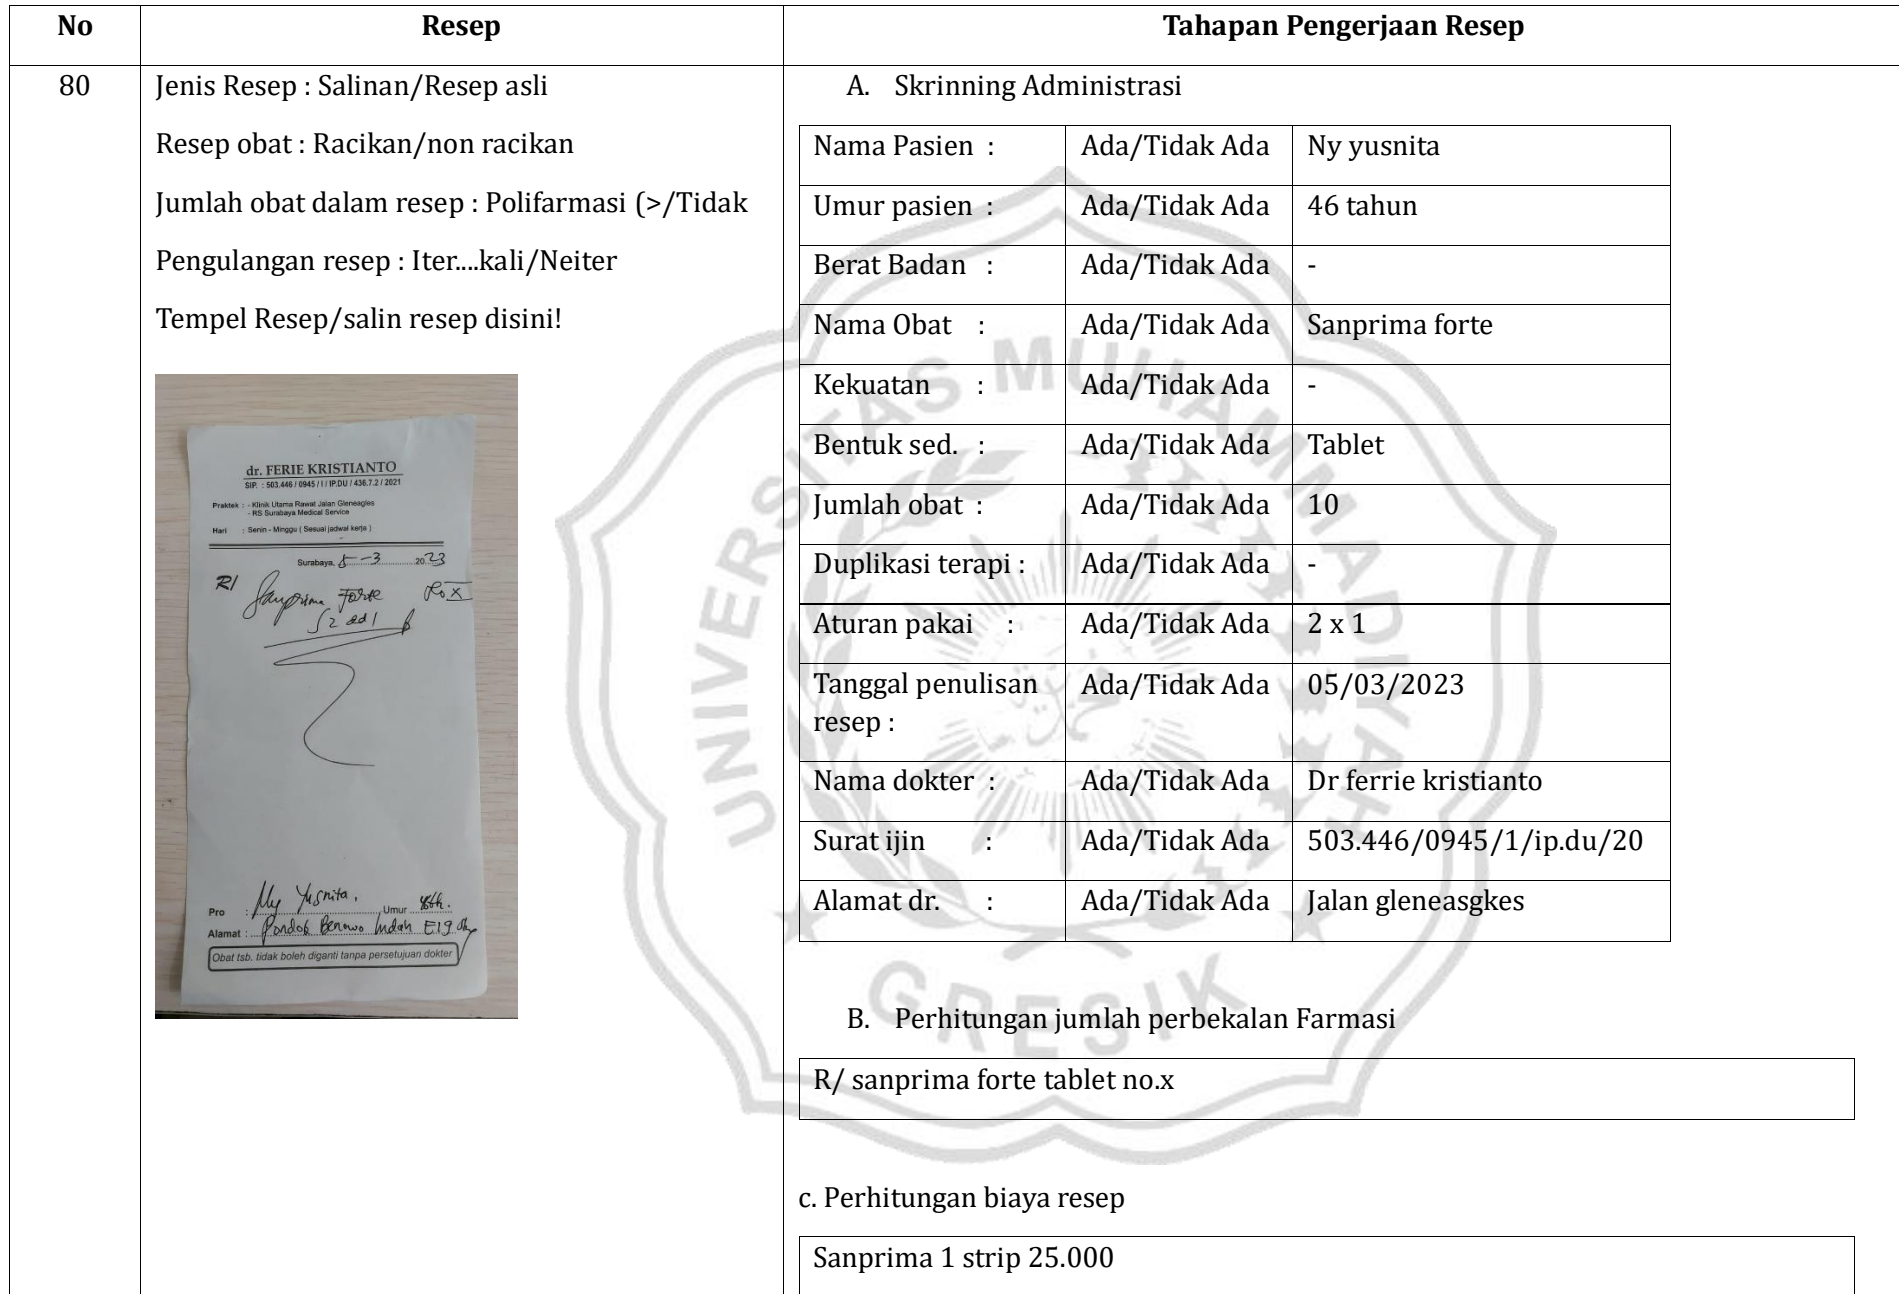 No
Resep
Tahapan Pengerjaan Resep
80
Jenis Resep : Salinan/Resep asli
Resep obat : Racikan/non racikan
Jumlah obat dalam resep : Polifarmasi (>/Tidak
Pengulangan resep : Iter....kali/Neiter
Tempel Resep/salin resep disini!
dr. FERIE KRISTIANTO
SIP. : 503.446 / 0945 / I / IP.DU / 436.7.2 / 2021
Praktek : - Klinik Utama Rawat Jalan Gleneagles
- RS Surabaya Medical Service
Hari : Senin - Minggu ( Sesuai jadwal kerja )
Surabaya, 5-3 2023
R/ Sanprima Forte No X
S 2 dd 1
Pro : Ny Yusnita, Umur
Alamat : Pondok Benowo Indah E19
Obat tsb. tidak boleh diganti tanpa persetujuan dokter
A. Skrinning Administrasi
Nama Pasien : Ada/Tidak Ada Ny yusnita
Umur pasien : Ada/Tidak Ada 46 tahun
Berat Badan : Ada/Tidak Ada -
Nama Obat : Ada/Tidak Ada Sanprima forte
Kekuatan : Ada/Tidak Ada -
Bentuk sed. : Ada/Tidak Ada Tablet
Jumlah obat : Ada/Tidak Ada 10
Duplikasi terapi : Ada/Tidak Ada -
Aturan pakai : Ada/Tidak Ada 2 x 1
Tanggal penulisan Ada/Tidak Ada 05/03/2023
resep :
Nama dokter : Ada/Tidak Ada Dr ferrie kristianto
Surat ijin : Ada/Tidak Ada 503.446/0945/1/ip.du/20
Alamat dr. : Ada/Tidak Ada Jalan gleneasgkes
B. Perhitungan jumlah perbekalan Farmasi
R/ sanprima forte tablet no.x
c. Perhitungan biaya resep
Sanprima 1 strip 25.000
UNIVERSITAS MUHAMMADIYAH
GRESIK